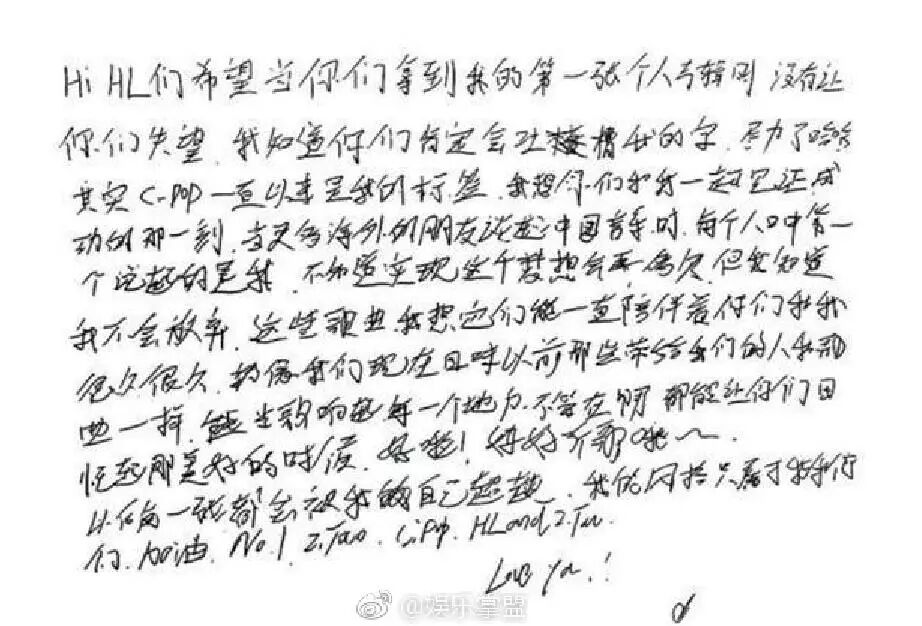 Hi HL们希望当你们拿到我的第一张个人专辑时 没有让
你们失望. 我知道你们肯定会吐槽我的字. 尽力了哈哈
其实 C-POP 一直以来是我的标签. 我想你们和我一起见证成
功的那一刻. 当更多海外的朋友谈起中国音乐时. 每个人口中第一
个说起的是我. 不知道实现这个梦想会要多久. 但我知道
我不会放弃. 这些歌曲我想它们能一直陪伴着你们和我
很久很久. 就像我们现在回味以前那些带给我们的人和歌
曲一样. 歌响起每一个地方. 不管在哪 都能让你们回
忆起那美好的时候. 好啦! 好好听歌哦~.
每一张都会被我的自己超越. 我们只属于我和你
们. 加油. No.1 Z.Tao. C-POP. HL and Z.Tao.
Love You.!
@娱乐掌盟